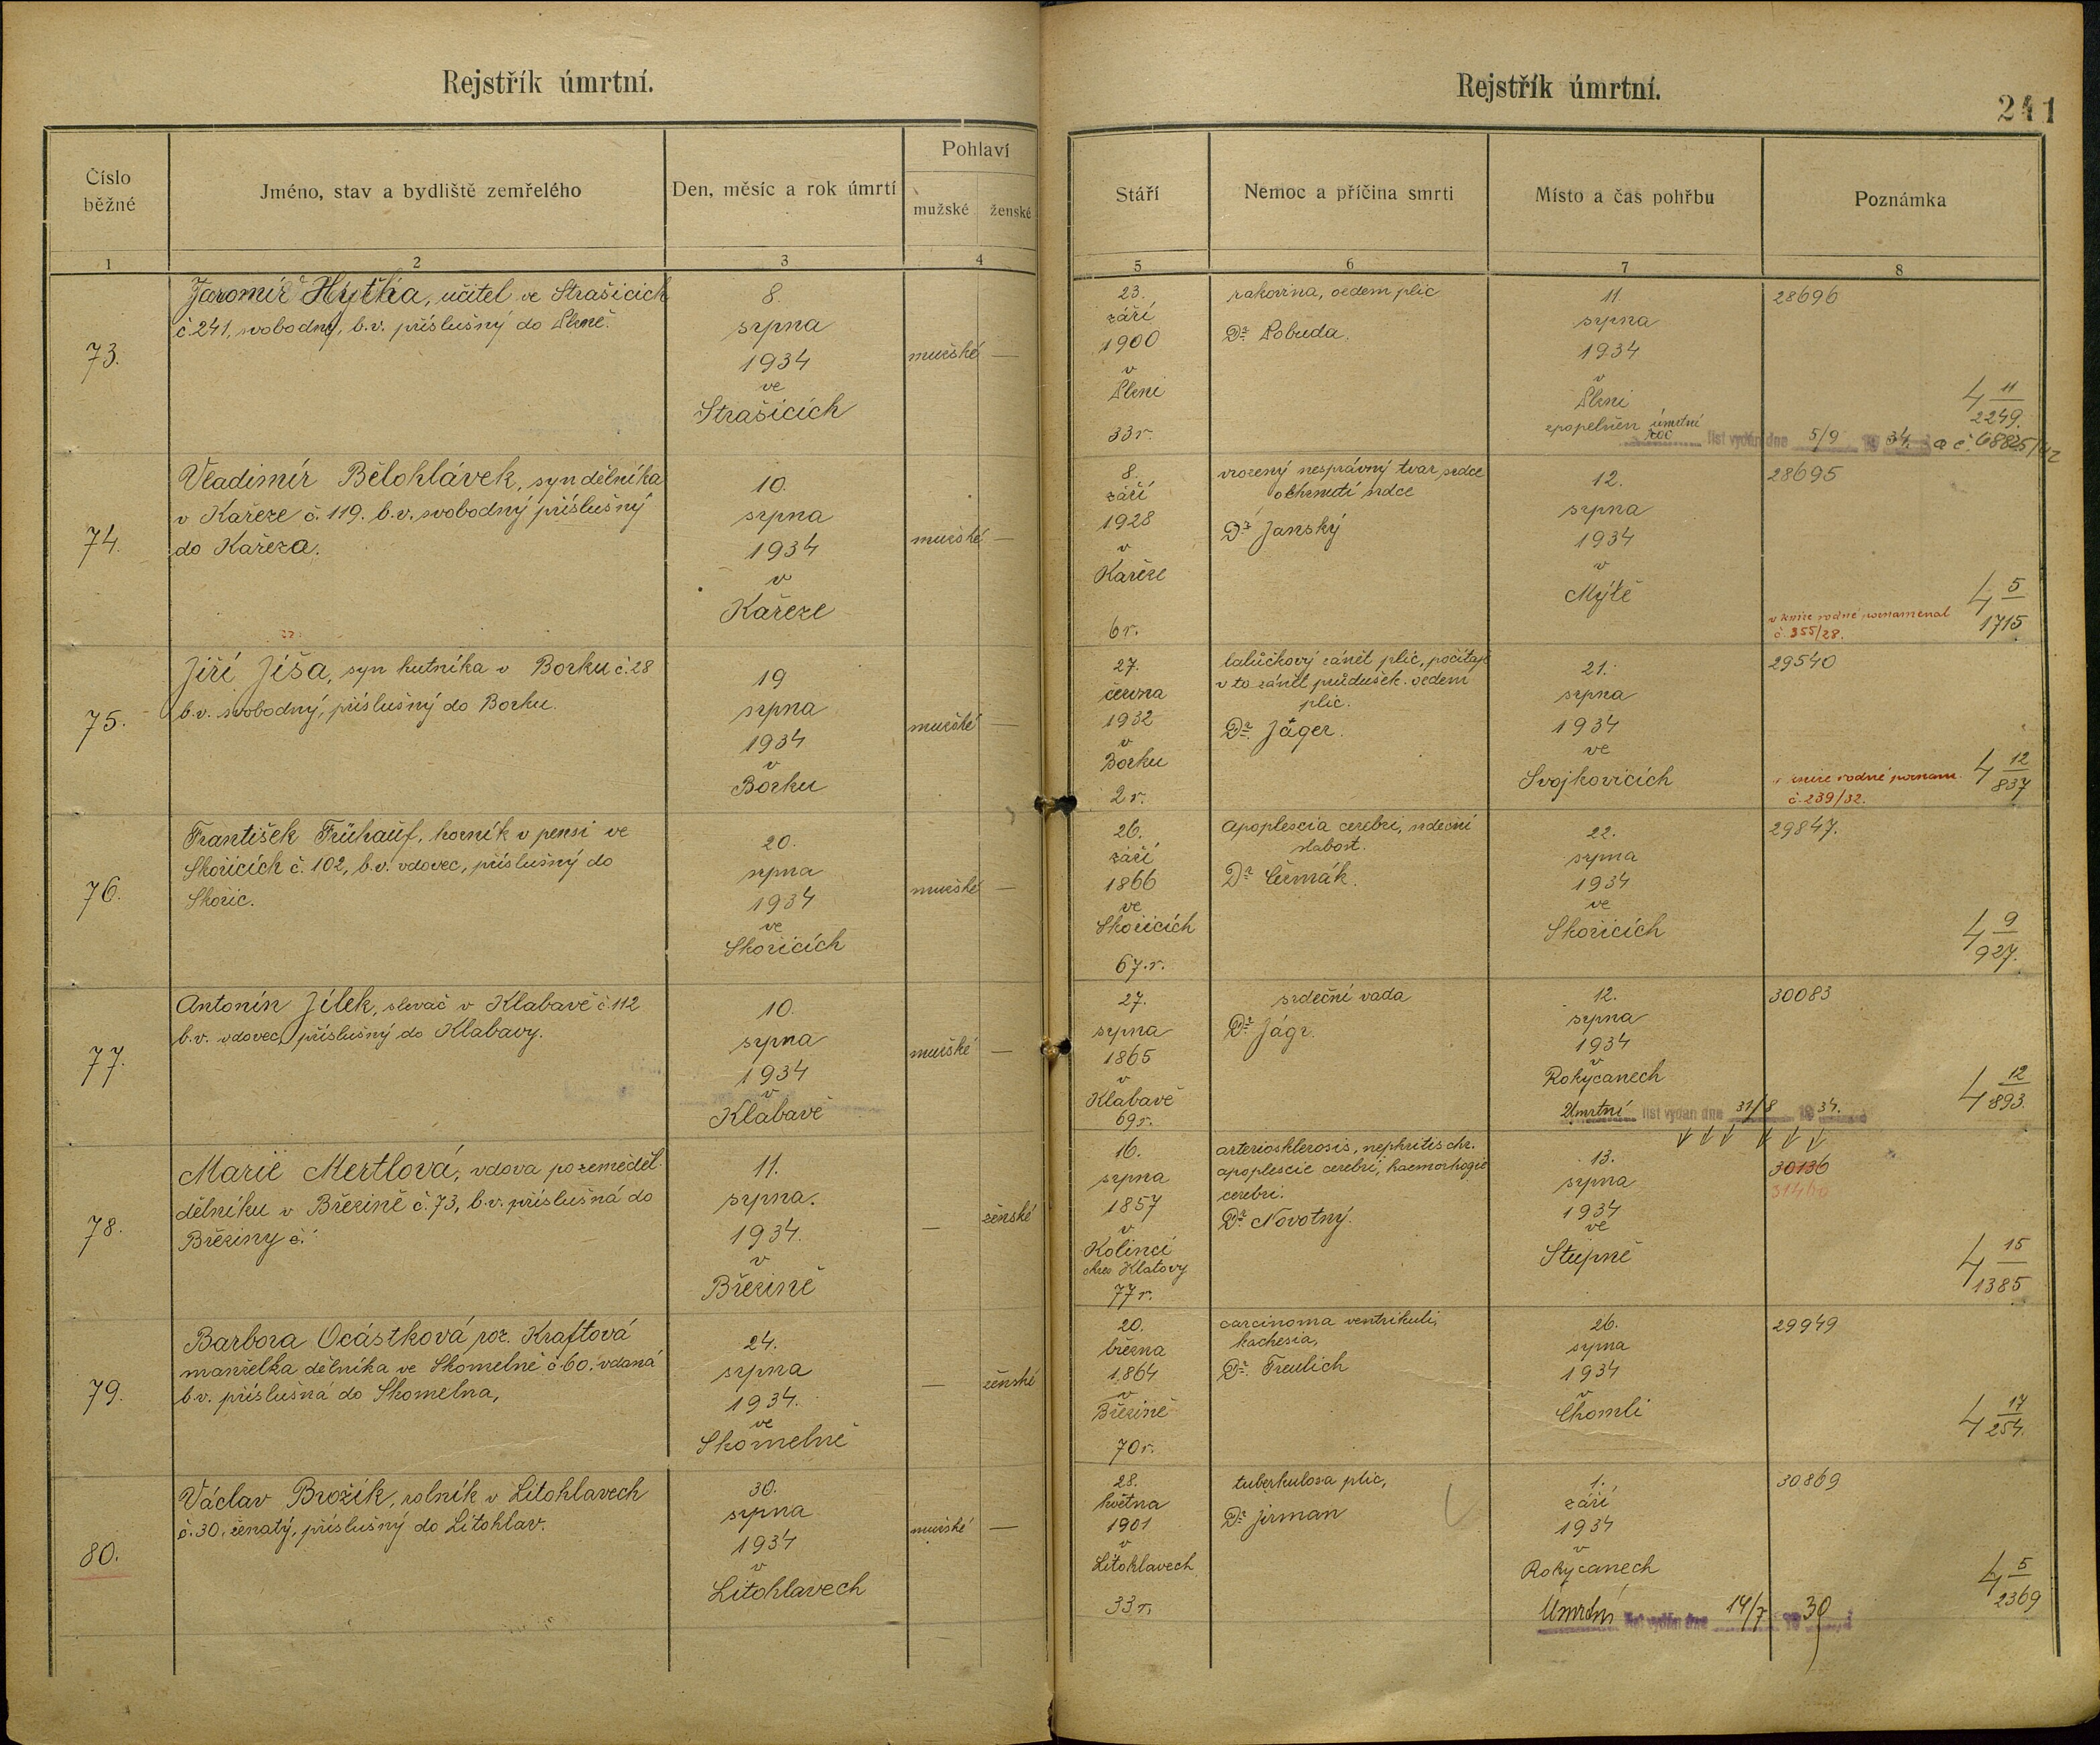 Rejstřík úmrtní.
Číslo běžné
Jméno, stav a bydliště zemřelého
Den, měsíc a rok úmrtí
Pohlaví
mužské
ženské
1
2
3
4
73.
Jaromír Hytka, učitel ve Strašicích
č. 241, svobodný, b.v. příslušný do Plzně.
8.
srpna
1934
ve
Strašicích
mužské —
74.
Vladimír Bělohlávek, syn dělníka
v Kařeze č. 119. b.v. svobodný příslušný
do Kařeza.
10.
srpna
1934
v
Kařeze
mužské —
75.
Jiří Jíša, syn hutníka v Borku č. 28
b.v. svobodný, příslušný do Borku.
19
srpna
1934
v
Borku
mužské —
76.
František Frühauf, horník v pensi ve
Skořicích č. 102, b.v. vdovec, příslušný do
Skořic.
20.
srpna
1934
ve
Skořicích
mužské —
77.
Antonín Jílek, slevač v Klabavě č. 112
b.v. vdovec, příslušný do Klabavy.
10.
srpna
1934
v
Klabavě
mužské —
78.
Marie Mertlová, vdova po zeměděl.
dělníku v Březině č. 73, b.v. příslušná do
Březiny č.
11.
srpna.
1934.
v
Březině
— ženské
79.
Barbora Ocástková roz. Kraftová
manželka dělníka ve Skomelně č. 60. vdaná
b.v. příslušná do Skomelna,
24.
srpna
1934.
ve
Skomelně
— ženské
80.
Václav Brožík, rolník v Litohlavech
č. 30, ženatý, příslušný do Litohlav.
30.
srpna
1934
v
Litohlavech
mužské —
Rejstřík úmrtní.
241
Stáří
Nemoc a příčina smrti
Místo a čas pohřbu
Poznámka
5
6
7
8
23.
září
1900
v
Plzni
33 r.
rakovina, oedem plic
Dr. Pobuda,
11.
srpna
1934
v
Plzni
zpopelněn
úmrtní
list vydán dne 5/9 19 34. a č. 68825/42
28696
4 11
2249.
8.
září
1928
v
Kařeze
6 r.
vrozený nesprávný tvar srdce
ochrnutí srdce
Dr. Janský
12.
srpna
1934
v
Mýtě
28695
v knize rodné poznamenal
č. 355/28.
4 5
1715
27.
června
1932
v
Borku
2 r.
lalůčkový zánět plic, počítaje
v to zánět průdušek. oedem
plic.
Dr. Jäger.
21.
srpna
1934
ve
Svojkovicích
29540
knize rodné poznam.
č. 239/32.
4 12
837
26.
září
1866
ve
Skořicích
67. r.
Apoplexia cerebri, srdeční
slabost.
Dr. Čermák.
22.
srpna
1934
ve
Skořicích
29847.
4 9
927.
27.
srpna
1865
v
Klabavě
69 r.
srdeční vada
Dr. Jágr.
12.
srpna
1934
v
Rokycanech
Úmrtní list vydán dne 31/8 19 34.
30083
4 12
893.
16.
srpna
1857
v
Kolinci
okres Klatovy
77 r.
arteriosklerosis, nephritis chr.
apoplescie cerebri, haemorhagie
cerebri.
Dr. Novotný.
13.
srpna
1934
ve
Stupně
30136
31460
4 15
1385
20.
března
1864
v
Březině
70 r.
carcinoma ventrikuli,
kachesia,
Dr. Freulich
26.
srpna
1934
v
Chomli
29949
4 17
254.
28.
května
1901
v
Litohlavech
33 r.
tuberkulosa plic,
Dr. Jirman
1.
září
1934
v
Rokycanech
Úmrtní list vydán dne 14/7 19 39
30869
4 5
2369